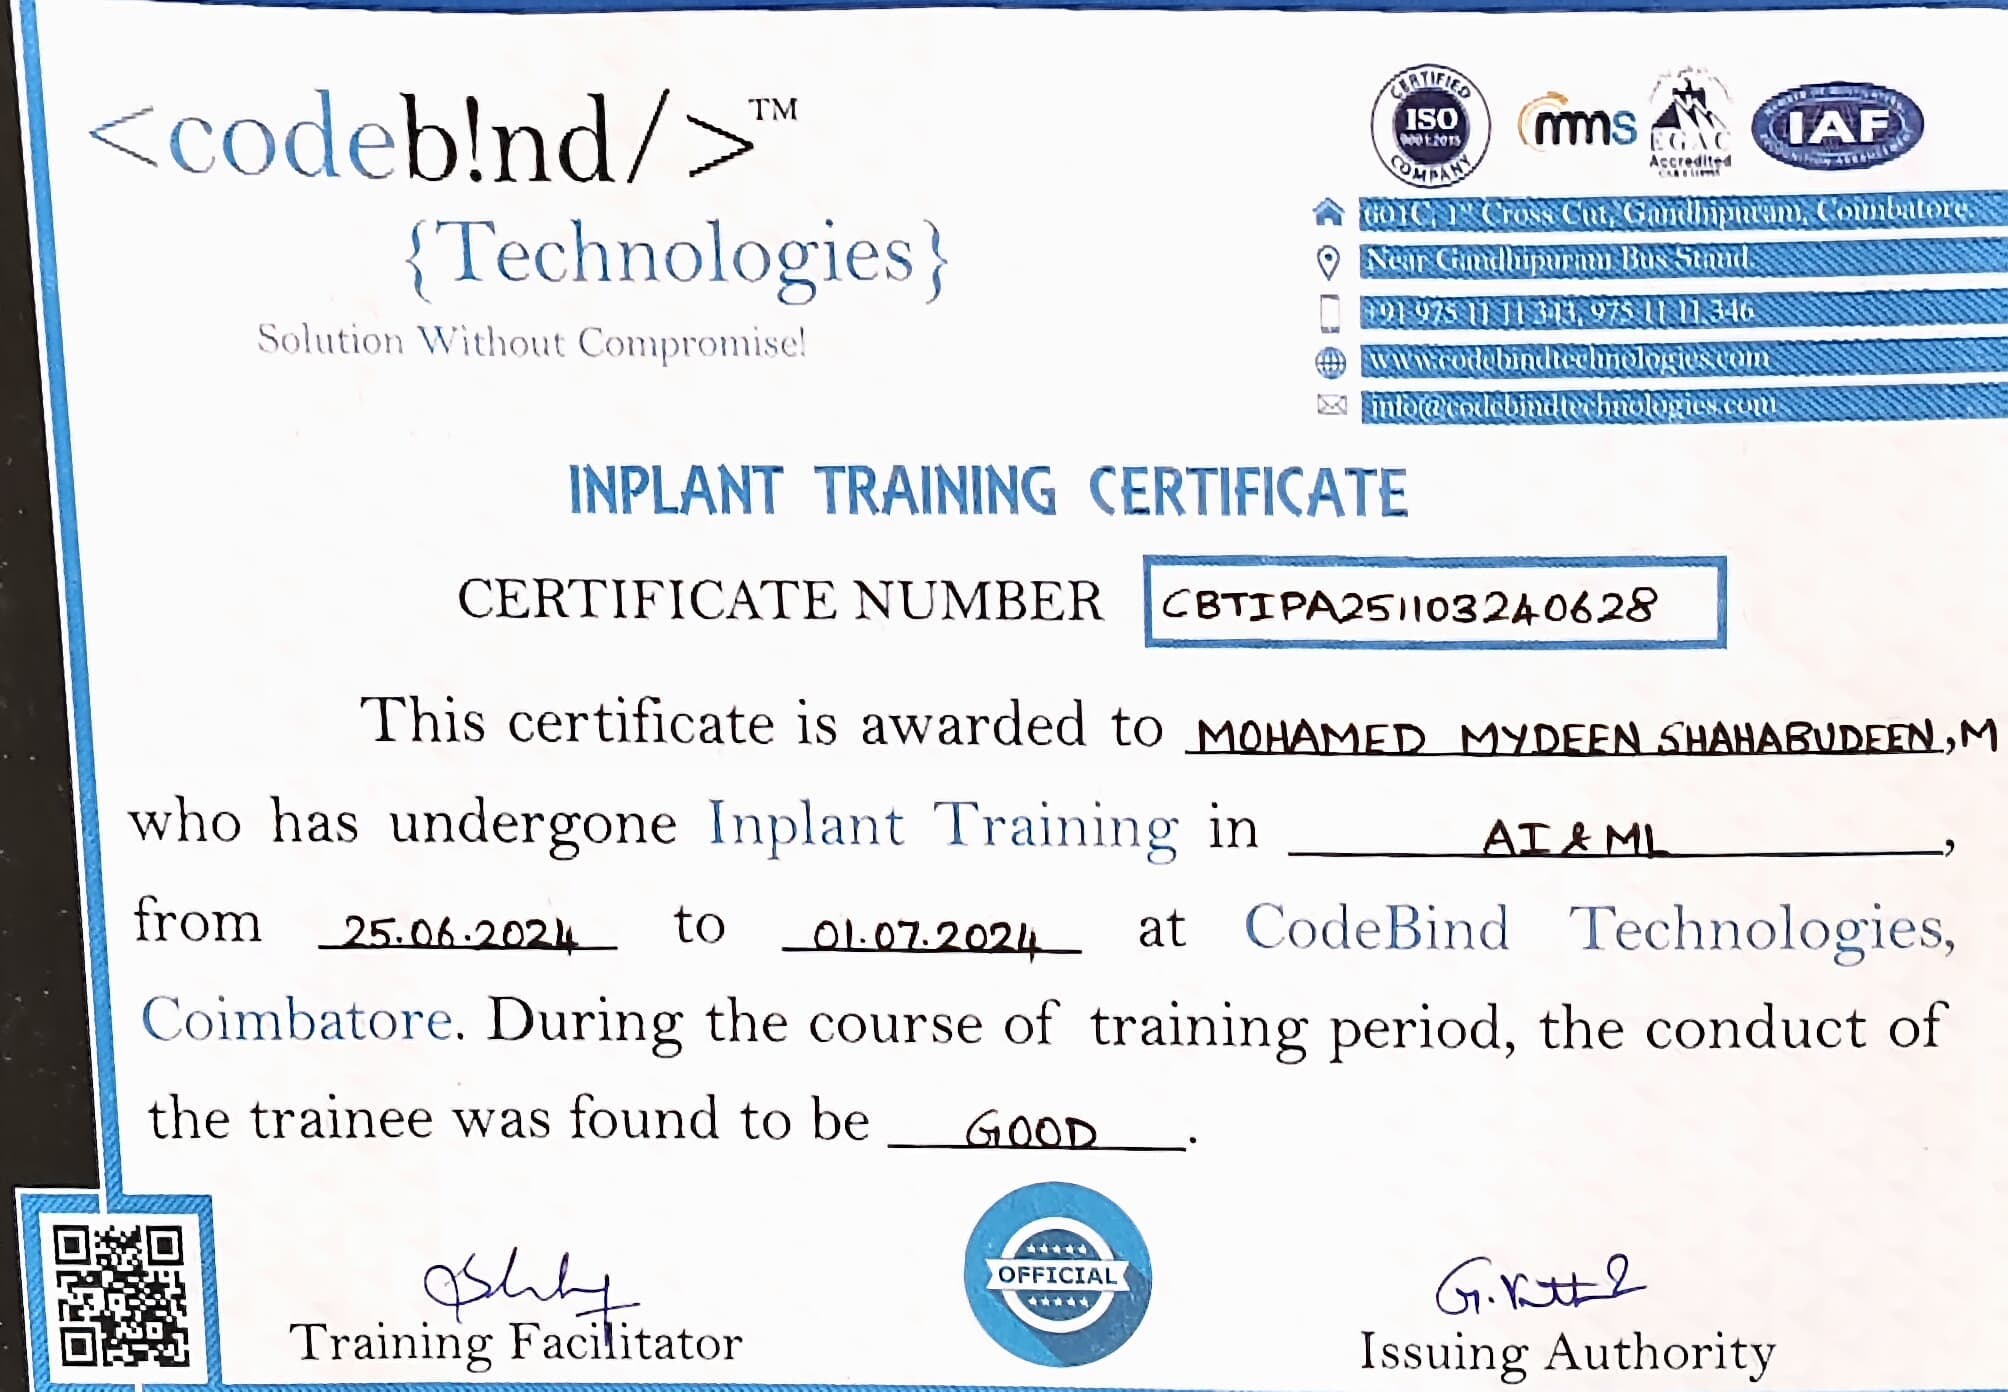 <codeb!nd/>™
{Technologies}
Solution Without Compromise!
CERTIFIED
ISO
9001:2015
COMPANY
mms
EGAC
Accredited
IAF
601C, 1st Cross Cut, Gandhipuram, Coimbatore.
Near Gandhipuram Bus Stand.
+91 975 11 11 343, 975 11 11 346
www.codebindtechnologies.com
info@codebindtechnologies.com
INPLANT TRAINING CERTIFICATE
CERTIFICATE NUMBER CBTIPA251103240628
This certificate is awarded to MOHAMED MYDEEN SHAHABUDEEN,M
who has undergone Inplant Training in AI & ML,
from 25.06.2024 to 01.07.2024 at CodeBind Technologies,
Coimbatore. During the course of training period, the conduct of
the trainee was found to be GOOD.
OFFICIAL
Training Facilitator
Issuing Authority